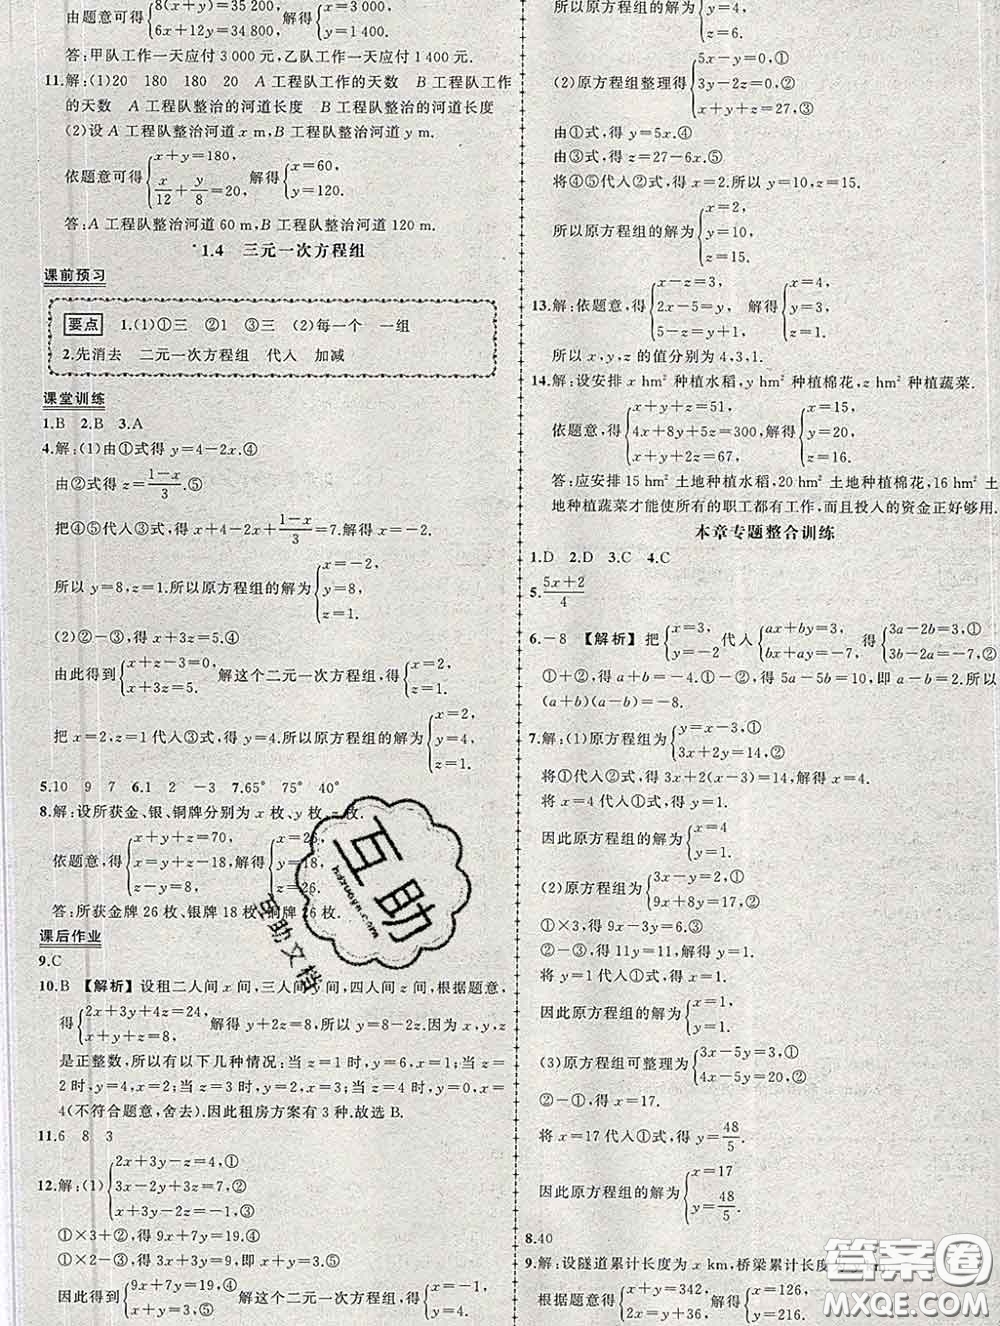 由题意可得{8(x+y)=35 200, 6x+12y=34 800 解得{x=3 000, y=1 400.
答:甲队工作一天应付 3 000 元,乙队工作一天应付 1 400 元.
11.解:(1)20 180 180 20 A 工程队工作的天数 B 工程队工作
的天数 A 工程队整治的河道长度 B 工程队整治的河道长度
(2)设 A 工程队整治河道 x m,B 工程队整治河道 y m.
依题意可得{x+y=180, x/12+y/8=20, 解得{x=60, y=120.
答:A 工程队整治河道 60 m,B 工程队整治河道 120 m.
1.4 三元一次方程组
课前预习
要点 1.(1)①三 ②1 ③三 (2)每一个 一组
2.先消去 二元一次方程组 代入 加减
课堂训练
1.B 2.B 3.A
4.解:(1)由①式得 y=4-2x.④
由②式得 z=(1-x)/3.⑤
把④⑤代入③式,得 x+4-2x+(1-x)/3=7.
所以 y=8,z=1.所以原方程组的解为{x=-2, y=8, z=1.
(2)②-③,得 x+3z=5.④
由此得到{x-3=0, x+3z=5. 解这个二元一次方程组,得{x=2, z=1.
把 x=2,z=1 代入③式,得 y=4.所以原方程组的解为{x=2, y=4, z=1.
5.10 9 7 6.1 2 -3 7.65° 75° 40°
8.解:设所获金、银、铜牌分别为 x 枚、y 枚、z 枚.
依题意,得{x+y+z=70, x=y+z-18, z-y=8, 解得{x=26, y=18, z=26.
答:所获金牌 26 枚、银牌 18 枚、铜牌 26 枚.
课后作业
9.C
10.B 【解析】设租二人间 x 间,三人间 y 间,四人间 z 间,根据题意,
得{2x+3y+4z=24, x+y+z=8, 解得 y+2z=8,所以 y=8-2z.因为 x,y,z
是正整数,所以有以下几种情况:当 z=1 时,y=6,x=1;当 z=
2 时,y=4,x=2;当 z=3 时,y=2,x=3;当 z=4 时,y=0,x=
4(不符合题意,舍去).因此租房方案有 3 种.故选 B.
11.6 8 3
12.解:(1){2x+3y-z=4,① 3x-2y+3z=7,② x+3y-2z=-1,③
①×3+②,得 9x+7y=19.④
①×2-③,得 3x+3y=9.即 x+y=3.⑤
因此得到{9x+7y=19,④ x+y=3,⑤ 解这个二元一次方程组,得
所以原方程组的解为{y=2, z=
(2)原方程组整理得{5x-y=0,① 3y-2z=0,② x+y+z=27,③
由①式,得 y=5x.④
由③式,得 z=27-6x.⑤
将④⑤代入②式,得 x=2.所以 y=10,z=15.
所以原方程组的解为{x=2, y=10, z=15.
13.解:依题意,得{x-z=3, 2x-5=y, 5-z=y+1, 解得{x=4, y=3, z=1.
所以 x,y,z 的值分别为 4,3,1.
14.解:设安排 x hm² 种植水稻,y hm² 种植棉花,z hm² 种植蔬菜.
依题意,得{x+y+z=51, 4x+8y+5z=300, x+y+2z=67, 解得{x=15, y=20, z=16.
答:应安排 15 hm² 土地种植水稻,20 hm² 土地种植棉花,16 hm² 土
地种植蔬菜才能使所有的职工都有工作,而且投入的资金正好够用.
本章专题整合训练
1.D 2.D 3.C 4.C
5.(5x+2)/4
6.-8 【解析】把{x=3, y=-2 代入{ax+by=3, bx+ay=-7, 得{3a-2b=3,① 3b-2a=-7,②
①+②,得 a+b=-4.①-②,得 5a-5b=10,即 a-b=2.所以
(a+b)(a-b)=-8.
7.解:(1)原方程组为{y=x-3,① 3x+2y=14,②
将①代入②式,得 3x+2(x-3)=14.解得 x=4.
将 x=4 代入①式,得 y=1.
因此原方程组的解为{x=4 y=1.
(2)原方程组为{3x-y=2,① 9x+8y=17,②
②-①×3,得 11y=11,解得 y=1.
将 y=1 代入①式,得 x=1.
因此原方程组的解为{x=1, y=1.
(3)原方程组可整理为{3x-5y=3,① 4x-5y=20,②
②-①,得 x=17.
将 x=17 代入①式,得 y=48/5.
因此原方程组的解为{x=17 y=48/5.
8.40
9.解:设隧道累计长度为 x km,桥梁累计长度
根据题意得{x+y=342, 2x=y+36, 解得{x=126, y=216.
互助
hdzuoye.com
互助文档
答案圈
MXQE.COM